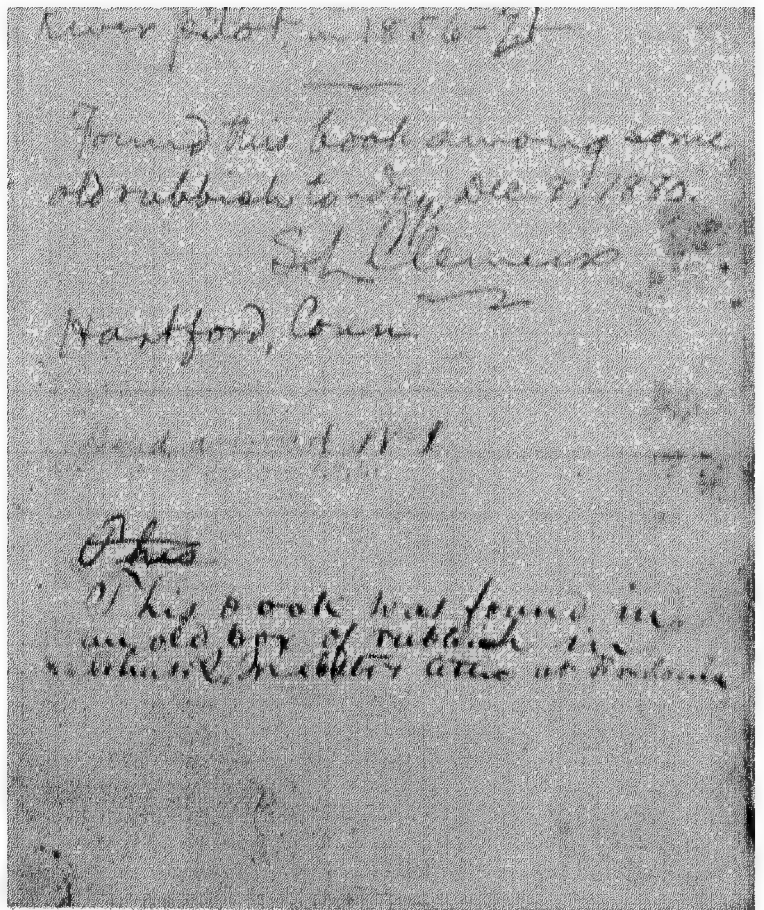 River pilot, in 1856-7
Found this book among some
old rubbish to-day, Dec. 2, 1880.
SL Clemens
Hartford, Conn.
This
This book was found in
an old box of rubbish in
attic at